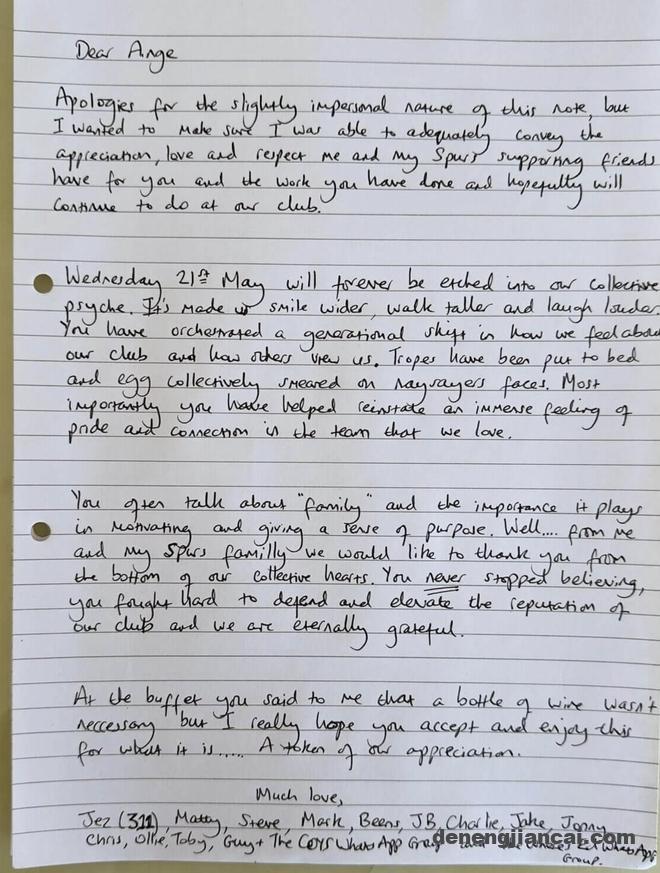 Dear Ange
Apologies for the slightly impersonal nature of this note, but
I wanted to make sure I was able to adequately convey the
appreciation, love and respect me and my Spurs supporting friends
have for you and the work you have done and hopefully will
continue to do at our club.
Wednesday 21st May will forever be etched into our collective
psyche. It's made us smile wider, walk taller and laugh louder.
You have orchestrated a generational shift in how we feel about
our club and how others view us. Tropes have been put to bed
and egg collectively smeared on naysayers faces. Most
importantly you have helped reinstate an immense feeling of
pride and connection in the team that we love.
You often talk about "family" and the importance it plays
in motivating and giving a sense of purpose. Well.... from me
and my Spurs familly we would like to thank you from
the bottom of our collective hearts. You never stopped believing,
you fought hard to defend and elevate the reputation of
our club and we are eternally grateful.
At the buffet you said to me that a bottle of wine wasn't
neccessary but I really hope you accept and enjoy this
for what it is..... A token of our appreciation.
Much love,
Jez (311), Matty, Steve, Mark, Beens, JB, Charlie, Jake, Jonny
Chris, Ollie, Toby, Guy + The COYS WhatsApp Group WhatsApp
Group.
denengjiancai.com